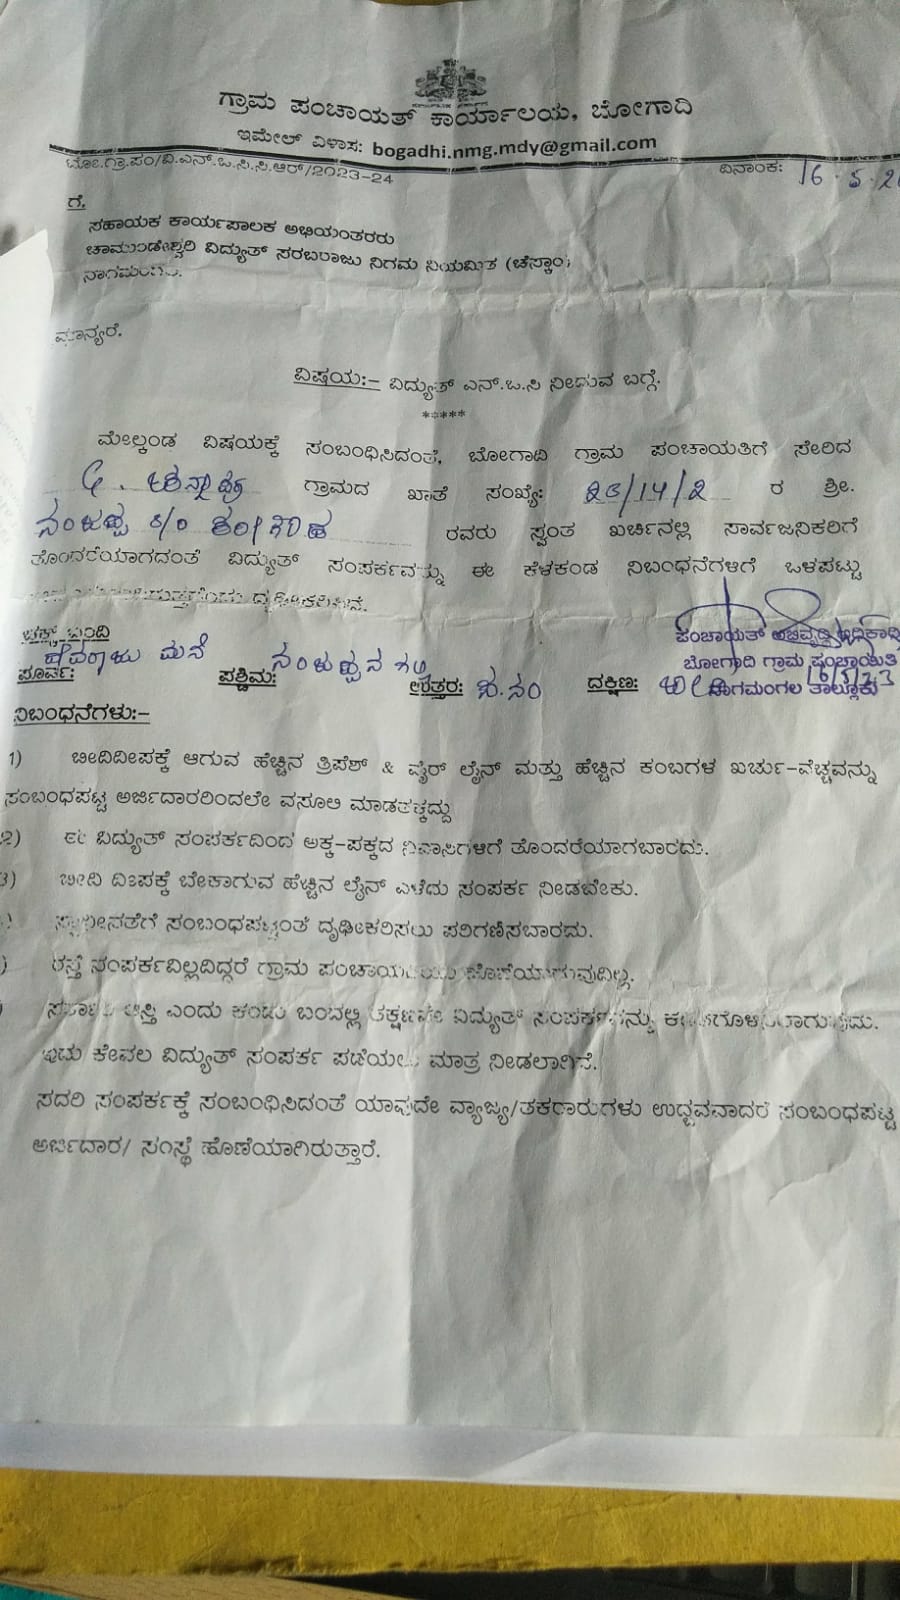 ಗ್ರಾಮ ಪಂಚಾಯತ್ ಕಾರ್ಯಾಲಯ, ಬೋಗಾದಿ
ಇಮೇಲ್ ವಿಳಾಸ: bogadhi.nmg.mdy@gmail.com
ಬೋ.ಗ್ರಾ.ಪಂ/ವಿ.ಎನ್.ಒ.ಸಿ.ಸಿ.ಆರ್/2023-24 ದಿನಾಂಕ: 16.5.2
ಗೆ,
ಸಹಾಯಕ ಕಾರ್ಯಪಾಲಕ ಅಭಿಯಂತರರು
ಚಾಮುಂಡೇಶ್ವರಿ ವಿದ್ಯುತ್ ಸರಬರಾಜು ನಿಗಮ ನಿಯಮಿತ (ಚೆಸ್ಕಾಂ)
ನಾಗಮಂಗಲ.
ಮಾನ್ಯರೆ.
ವಿಷಯ:- ವಿದ್ಯುತ್ ಎನ್.ಒ.ಸಿ ನೀಡುವ ಬಗ್ಗೆ.
*****
ಮೇಲ್ಕಂಡ ವಿಷಯಕ್ಕೆ ಸಂಬಂಧಿಸಿದಂತೆ, ಬೋಗಾದಿ ಗ್ರಾಮ ಪಂಚಾಯತಿಗೆ ಸೇರಿದ
ಗ್ರಾಮದ ಖಾತೆ ಸಂಖ್ಯೆ: /14/2 ರ ಶ್ರೀ.
ನಂಜಪ್ಪ s/o ರವರು ಸ್ವಂತ ಖರ್ಚಿನಲ್ಲಿ ಸಾರ್ವಜನಿಕರಿಗೆ
ತೊಂದರೆಯಾಗದಂತೆ ವಿದ್ಯುತ್ ಸಂಪರ್ಕವನ್ನು ಈ ಕೆಳಕಂಡ ನಿಬಂಧನೆಗಳಿಗೆ ಒಳಪಟ್ಟು
ದೃಢೀಕರಿಸಿದೆ.
ಪಂಚಾಯತ್ ಅಭಿವೃದ್ಧಿ ಅಧಿಕಾರಿ
ಬೋಗಾದಿ ಗ್ರಾಮ ಪಂಚಾಯಿತಿ
ನಾಗಮಂಗಲ ತಾಲ್ಲೂಕು
16/5/23
ಚಕ್ಕುಬಂದಿ
ಪೂರ್ವ: ದೇವರಾಜು ಮನೆ ಪಶ್ಚಿಮ: ನಂಜಪ್ಪನ ಉತ್ತರ: ದಕ್ಷಿಣ:
ನಿಬಂಧನೆಗಳು:-
1) ಬೀದಿದೀಪಕ್ಕೆ ಆಗುವ ಹೆಚ್ಚಿನ ತ್ರಿಪೆಶ್ & ವೈರ್ ಲೈನ್ ಮತ್ತು ಹೆಚ್ಚಿನ ಕಂಬಗಳ ಖರ್ಚು-ವೆಚ್ಚವನ್ನು
ಸಂಬಂಧಪಟ್ಟ ಅರ್ಜಿದಾರರಿಂದಲೇ ವಸೂಲಿ ಮಾಡತಕ್ಕದ್ದು
2) ಈ ವಿದ್ಯುತ್ ಸಂಪರ್ಕದಿಂದ ಅಕ್ಕ-ಪಕ್ಕದ ನಿವಾಸಿಗಳಿಗೆ ತೊಂದರೆಯಾಗಬಾರದು.
3) ಬೀದಿ ದೀಪಕ್ಕೆ ಬೇಕಾಗುವ ಹೆಚ್ಚಿನ ಲೈನ್ ಎಳೆದು ಸಂಪರ್ಕ ನೀಡಬೇಕು.
ಸ್ವಾಧೀನತೆಗೆ ಸಂಬಂಧಪಟ್ಟಂತೆ ದೃಢೀಕರಿಸಲು ಪರಿಗಣಿಸಬಾರದು.
ರಸ್ತೆ ಸಂಪರ್ಕವಿಲ್ಲದಿದ್ದರೆ ಗ್ರಾಮ ಪಂಚಾಯತಿಯು ಹೊಣೆಯಾಗುವುದಿಲ್ಲ.
ಸರ್ಕಾರಿ ಆಸ್ತಿ ಎಂದು ಕಂಡು ಬಂದಲ್ಲಿ ತಕ್ಷಣವೇ ವಿದ್ಯುತ್ ಸಂಪರ್ಕವನ್ನು ಕಡಿತಗೊಳಿಸಲಾಗುವುದು.
ಇದು ಕೇವಲ ವಿದ್ಯುತ್ ಸಂಪರ್ಕ ಪಡೆಯಲು ಮಾತ್ರ ನೀಡಲಾಗಿದೆ.
ಸದರಿ ಸಂಪರ್ಕಕ್ಕೆ ಸಂಬಂಧಿಸಿದಂತೆ ಯಾವುದೇ ವ್ಯಾಜ್ಯ/ತಕರಾರುಗಳು ಉದ್ಭವವಾದರೆ ಸಂಬಂಧಪಟ್ಟ
ಅರ್ಜಿದಾರ/ ಸಂಸ್ಥೆ ಹೊಣೆಯಾಗಿರುತ್ತಾರೆ.